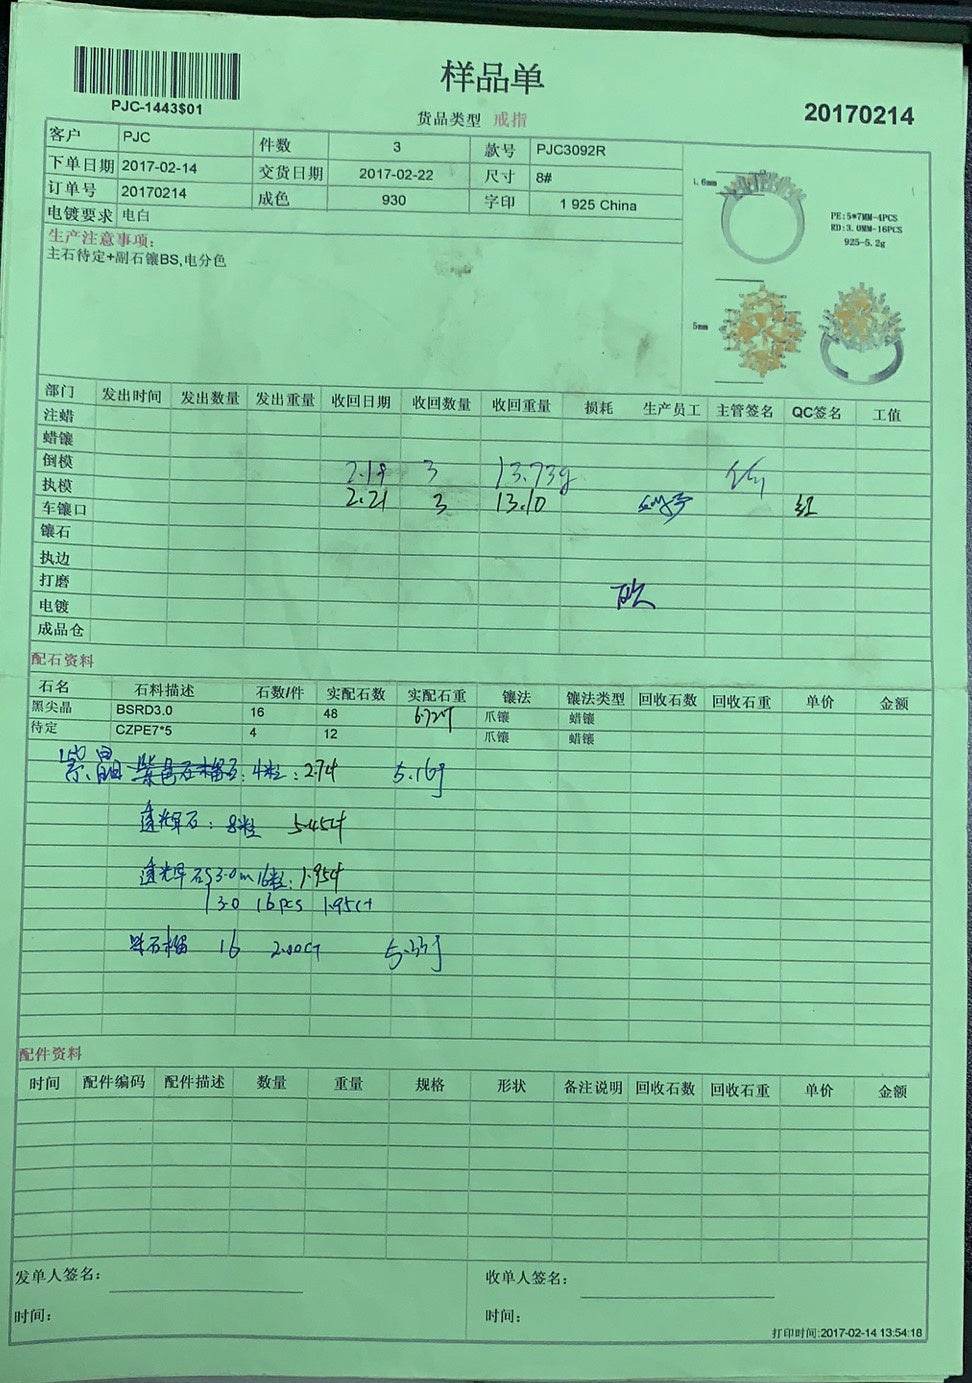 样品单
PJC-1443$01
货品类型 戒指
20170214
客户 PJC 件数 3 款号 PJC3092R
下单日期 2017-02-14 交货日期 2017-02-22 尺寸 8#
订单号 20170214 成色 930 字印 1 925 China
电镀要求 电白
生产注意事项:
主石待定+副石镶BS,电分色
1.6mm
PE:5*7MM-4PCS
RD:3.0MM-16PCS
925-5.2g
5mm
部门 发出时间 发出数量 发出重量 收回日期 收回数量 收回重量 损耗 生产员工 主管签名 QC签名 工值
注蜡
蜡镶
倒模 2.19 3 13.73g
执模 2.21 3 13.10 红
车镶口
镶石
执边
打磨
电镀
成品仓
配石资料
石名 石料描述 石数/件 实配石数 实配石重 镶法 镶法类型 回收石数 回收石重 单价 金额
黑尖晶 BSRD3.0 16 48 6.72 爪镶 蜡镶
待定 CZPE7*5 4 12 爪镶 蜡镶
紫晶 紫色石榴石: 4粒: 2.74 5.16g
透辉石: 8粒 5.45ct
透辉石 3.0m 16粒: 1.95ct
3.0 16pcs 1.95ct
石榴 16 2.00ct 5.33g
配件资料
时间 配件编码 配件描述 数量 重量 规格 形状 备注说明 回收石数 回收石重 单价 金额
发单人签名: 收单人签名:
时间: 时间:
打印时间:2017-02-14 13:54:18